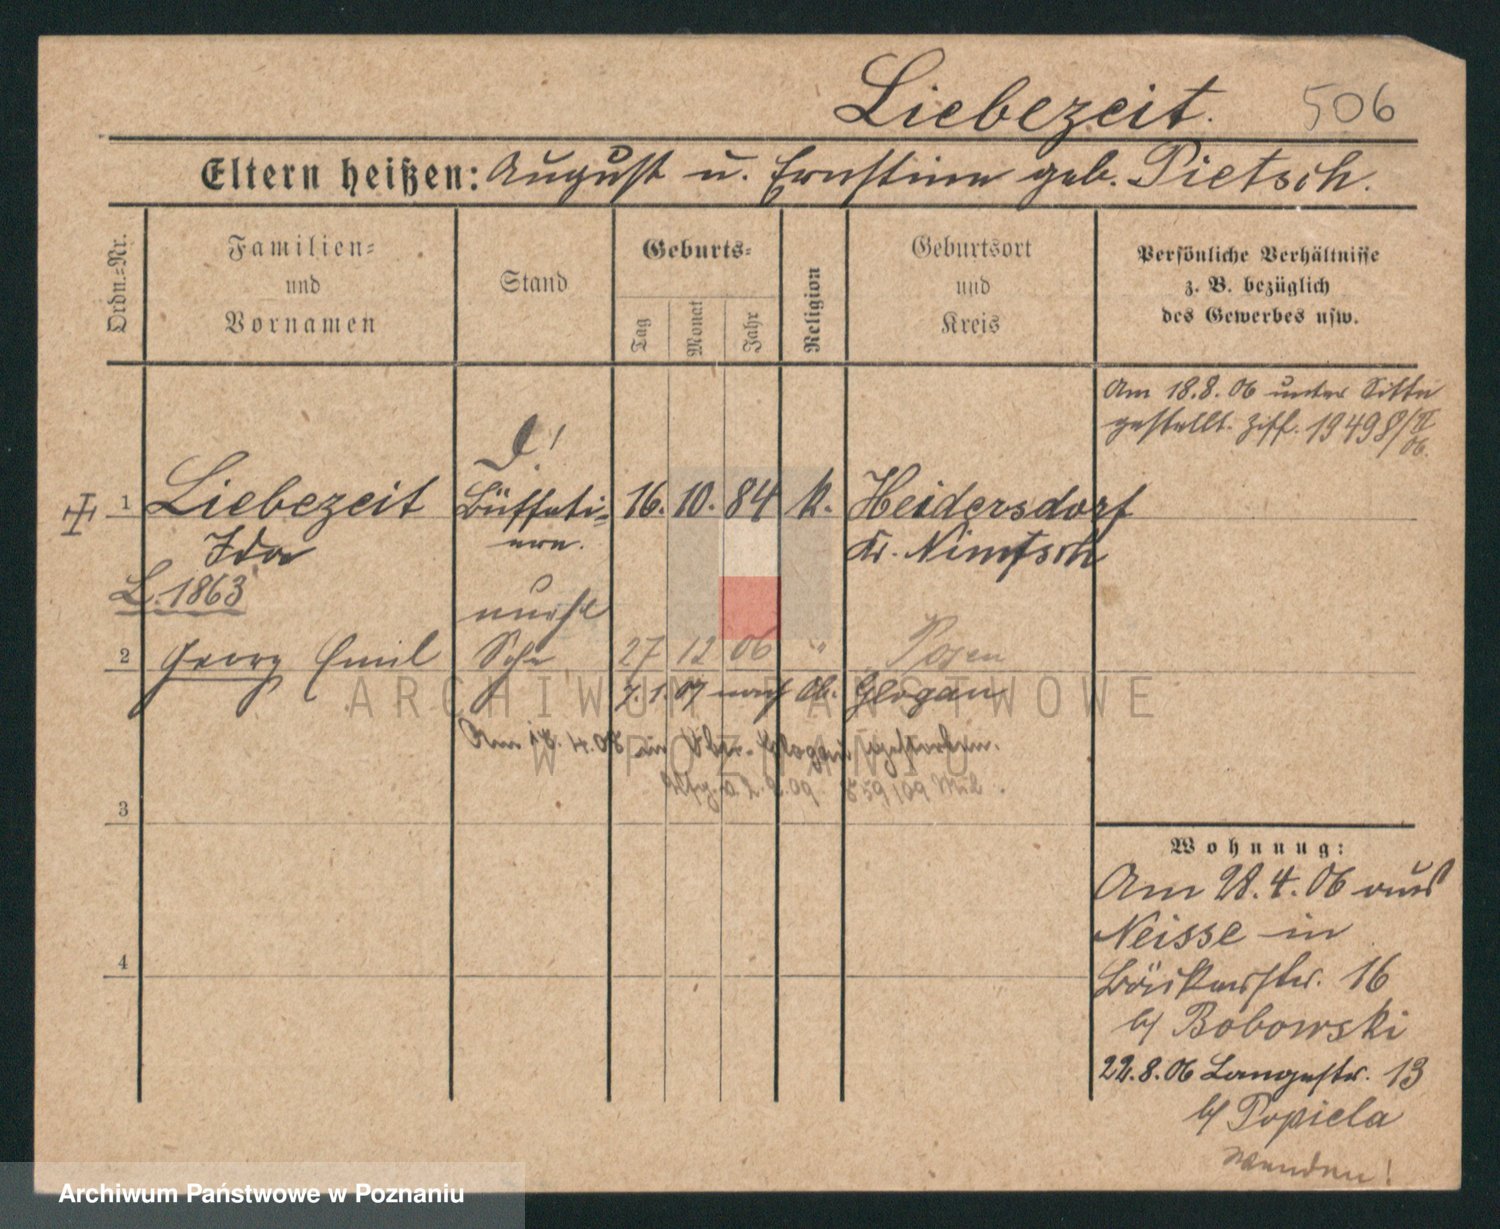 Liebezeit. 506
Eltern heißen: August u. Ernstine geb. Pietsch.
Ordn.=Nr.
Familien=
und
Vornamen
Stand
Geburts=
Tag
Monat
Jahr
Religion
Geburtsort
und
Kreis
Persönliche Verhältnisse
z. B. bezüglich
des Gewerbes usw.
Am 18.8.06 unter Sitte
gestellt. Ziff. 19498/II
06.
D!
1 Liebezeit Büffeti= 16. 10. 84 k. Heidersdorf
Ida ere. Kr. Nimtsch
L. 1863
unehl
2 Georg Emil Sohn 27 12 06 " Posen
7.1.07 nach Ob. Glogau
Am 18.4.08 in Ober-Glogau gestorben.
859/09
3
4
Wohnung:
Am 28.4.06 aus
Neisse in
Bäckerstr. 16
b/ Bobowski
22.8.06 Langestr. 13
b/ Popiela
Wenden!
ARCHIWUM PAŃSTWOWE
W POZNANIU
Archiwum Państwowe w Poznaniu